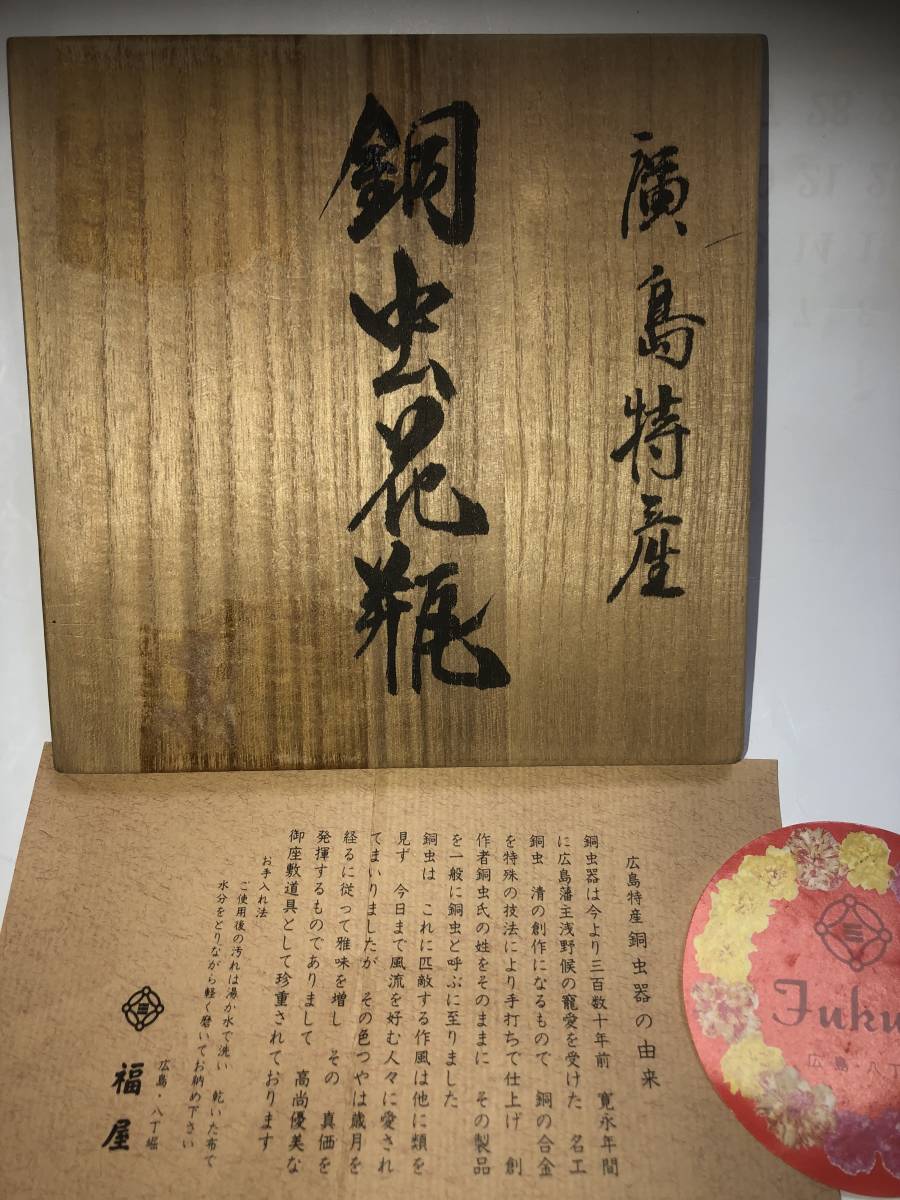 廣島特産
銅虫花瓶
広島特産 銅虫器の由来
銅虫器は今より三百数十年前 寛永年間
に広島藩主浅野候の寵愛を受けた 名工
銅虫 清の創作になるもので 銅の合金
を特殊の技法により手打ちで仕上げ 創
作者銅虫氏の姓をそのままに その製品
を一般に銅虫と呼ぶに至りました
銅虫は これに匹敵する作風は他に類を
見ず 今日まで風流を好む人々に愛され
てまいりましたが その色つやは歳月を
経るに従って雅味を増し その 真価を
発揮するものでありまして 高尚優美な
御座敷道具として珍重されております
お手入れ法
ご使用後の汚れは湯か水で洗い 乾いた布て
水分をとりながら軽く磨いてお納め下さい
広島・八丁堀
福屋
Fuku
広島・八丁